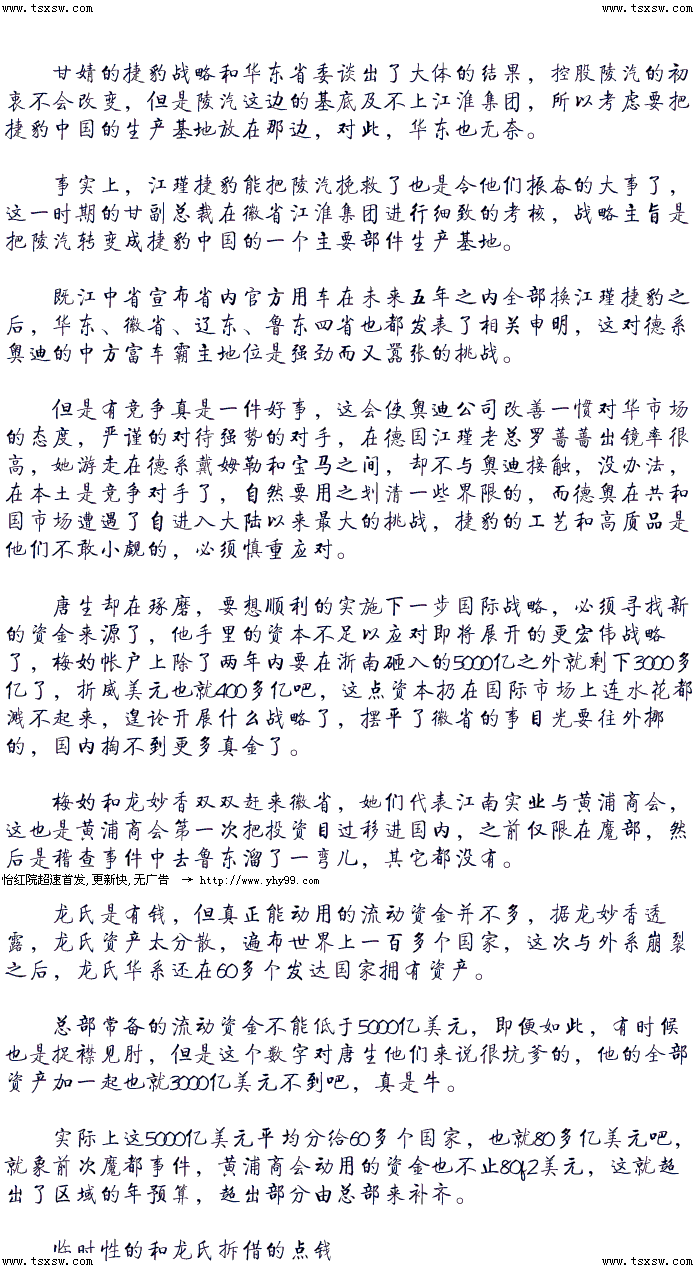 www.tsxsw.com www.tsxsw.com
甘婧的捷豹战略和华东省委谈出了大体的结果，控股陵汽的初
衷不会改变，但是陵汽这边的基底及不上江淮集团，所以考虑要把
捷豹中国的生产基地放在那边，对此，华东也无奈。
事实上，江瑾捷豹能把陵汽挽救了也是令他们振奋的大事了，
这一时期的甘副总裁在徽省江淮集团进行细致的考核，战略主旨是
把陵汽转变成捷豹中国的一个主要部件生产基地。
既江中省宣布省内官方用车在未来五年之内全部换江瑾捷豹之
后，华东、徽省、辽东、鲁东四省也都发表了相关申明，这对德系
奥迪的中方富车霸主地位是强劲而又嚣张的挑战。
但是有竞争真是一件好事，这会使奥迪公司改善一惯对华市场
的态度，严谨的对待强势的对手，在德国江瑾老总罗蔷蔷出镜率很
高，她游走在德系戴姆勒和宝马之间，却不与奥迪接触，没办法，
在本土是竞争对手了，自然要用之划清一些界限的，而德奥在共和
国市场遭遇了自进入大陆以来最大的挑战，捷豹的工艺和高质品是
他们不敢小觑的，必须慎重应对。
唐生却在琢磨，要想顺利的实施下一步国际战略，必须寻找新
的资金来源了，他手里的资本不足以应对即将展开的更宏伟战略
了，梅妁帐户上除了两年内要在浙南砸入的5000亿之外就剩下3000多
亿了，折威美元也就400多亿吧，这点资本扔在国际市场上连水花都
溅不起来，遑论开展什么战略了，摆平了徽省的事目光要往外挪
的，国内掏不到更多真金了。
梅妁和龙妙香双双赶来徽省，她们代表江南实业与黄浦商会，
这也是黄浦商会第一次把投资目过移进国内，之前仅限在魔部，然
后是稽查事件中去鲁东溜了一弯儿，其它都没有。
怡红院超速首发,更新快,无广告 → http://www.yhy99.com
龙氏是有钱，但真正能动用的流动资金并不多，据龙妙香透
露，龙氏资产太分散，遍布世界上一百多个国家，这次与外系崩裂
之后，龙氏华系还在60多个发达国家拥有资产。
总部常备的流动资金不能低于5000亿美元，即便如此，有时候
也是捉襟见肘，但是这个数字对唐生他们来说很坑爹的，他的全部
资产加一起也就3000亿美元不到吧，真是牛。
实际上这5000亿美元平均分给60多个国家，也就80多亿美元吧，
就象前次魔都事件，黄浦商会动用的资金也不止80亿美元，这就超
出了区域的年预算，超出部分由总部来补齐。
临时性的和龙氏拆借的点钱
www.tsxsw.com www.tsxsw.com